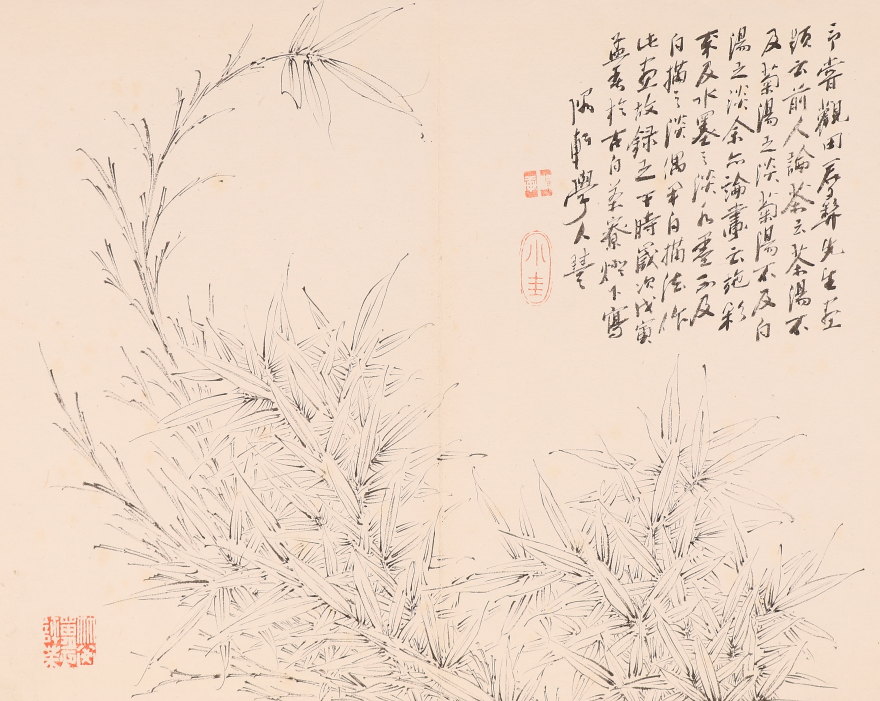 嘗觀田先生畫
題云前人論茶云茶湯不
及菊湯之淡菊湯不及白
湯之淡余亦論畫云施彩
及水墨之淡水墨不及
白描之淡偶用白描法作
此畫故錄之于時歲次戊寅
孟春於古白茶寮燈下寫
軒學人
小圭